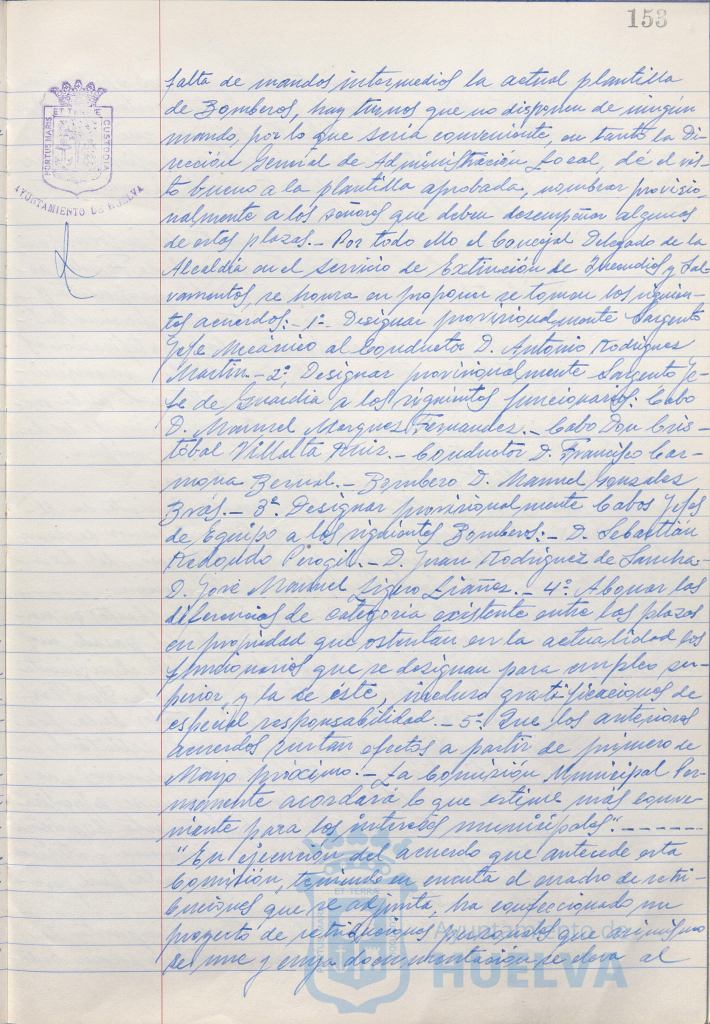 153
PORTUS MARIS
ET TERRE
CUSTODIA
AYUNTAMIENTO DE HUELVA
falta de mandos intermedios la actual plantilla
de Bomberos, hay turnos que no disponen de ningún
mando, por lo que sería conveniente, en tanto la Di-
rección General de Administración Local, dé el vis-
to bueno a la plantilla aprobada, nombrar provisio-
nalmente a los señores que deben desempeñar algunas
de estas plazas.- Por todo ello el Concejal Delegado de la
Alcaldía en el Servicio de Extinción de Incendios y Sal-
vamentos, se honra en proponer se tomen los siguien-
tes acuerdos:- 1º- Designar provisionalmente Sargento
Jefe Mecánico al Conductor D. Antonio Rodriguez
Martin.- 2º, Designar provisionalmente Sargento Je-
fe de Guardia a los siguientes funcionarios: Cabo
D. Manuel Marquez Fernandez.- Cabo Don Cris-
tóbal Villalta Ruiz.- Conductor D. Francisco Car-
mona Bernal.- Bombero D. Manuel Gonzalez
Brás.- 3º. Designar provisionalmente Cabos Jefes
de Equipo a los siguientes Bomberos:- D. Sebastián
Redondo Perogil.- D. Juan Rodríguez de Sancha-
D. José Manuel Ligero Liáñez.- 4º. Abonar las
diferencias de categoria existente entre las plazas
en propiedad que ostentan en la actualidad los
funcionarios que se designan para empleo su-
perior y la de éste, incluso gratificaciones de
especial responsabilidad.- 5º. Que los anteriores
acuerdos surtan efectos a partir de primero de
Mayo próximo.- La Comisión Municipal Per-
manente acordará lo que estime más conve-
niente para los intereses municipales".------
"En ejecución del acuerdo que antecede esta
Comisión, teniendo en cuenta el cuadro de retri-
buciones que se adjunta, ha confeccionado un
proyecto de retribuciones personales que asimismo
se une y cuya documentación se eleva al
Ayuntamiento de
HUELVA